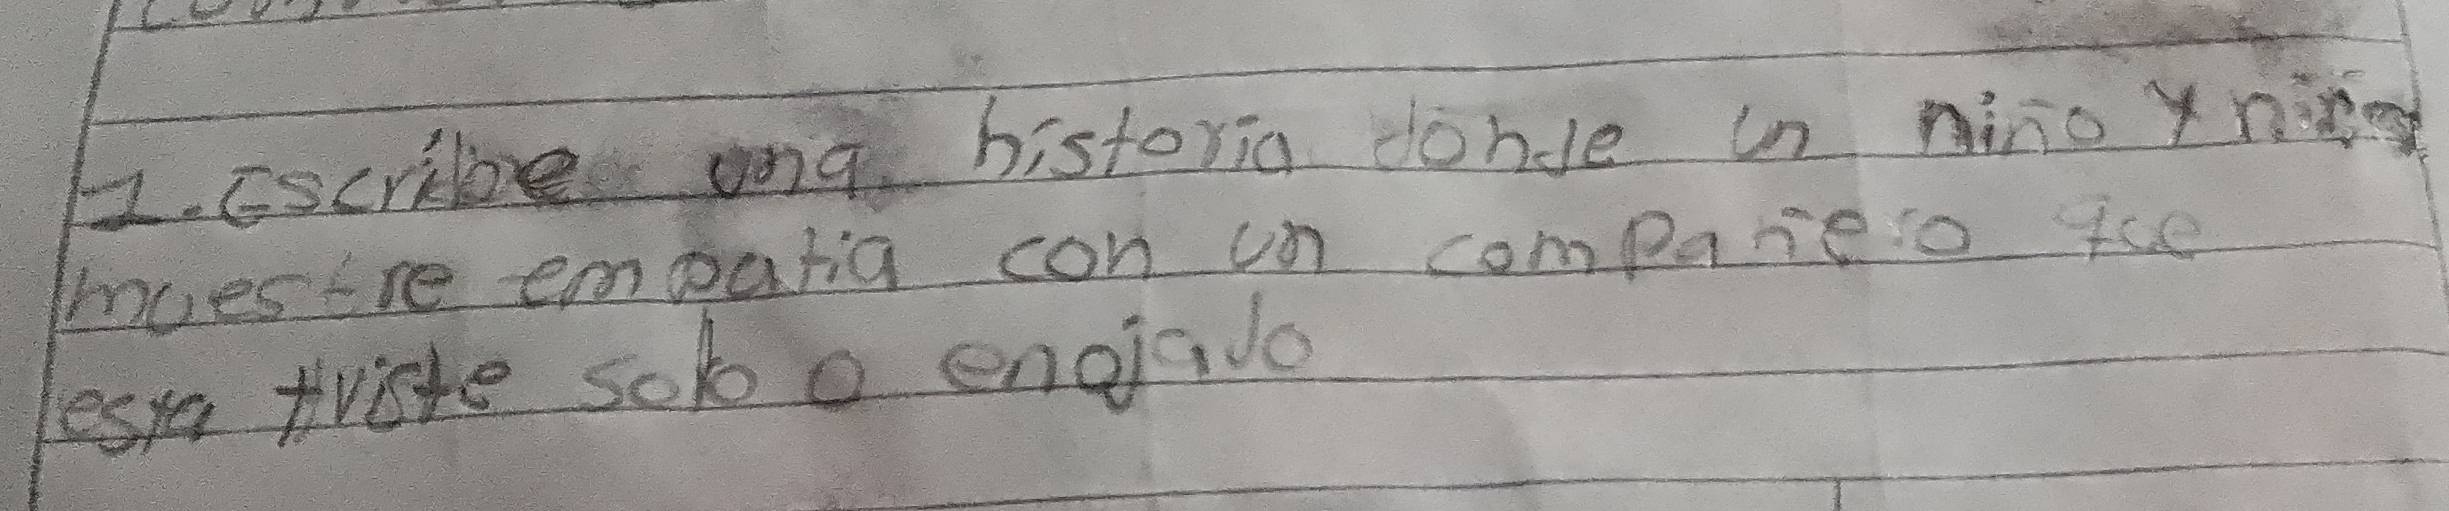 1. Escribe una historia donde un niño y niña
muestre empatia con un compañero que
esta triste solo o enojado